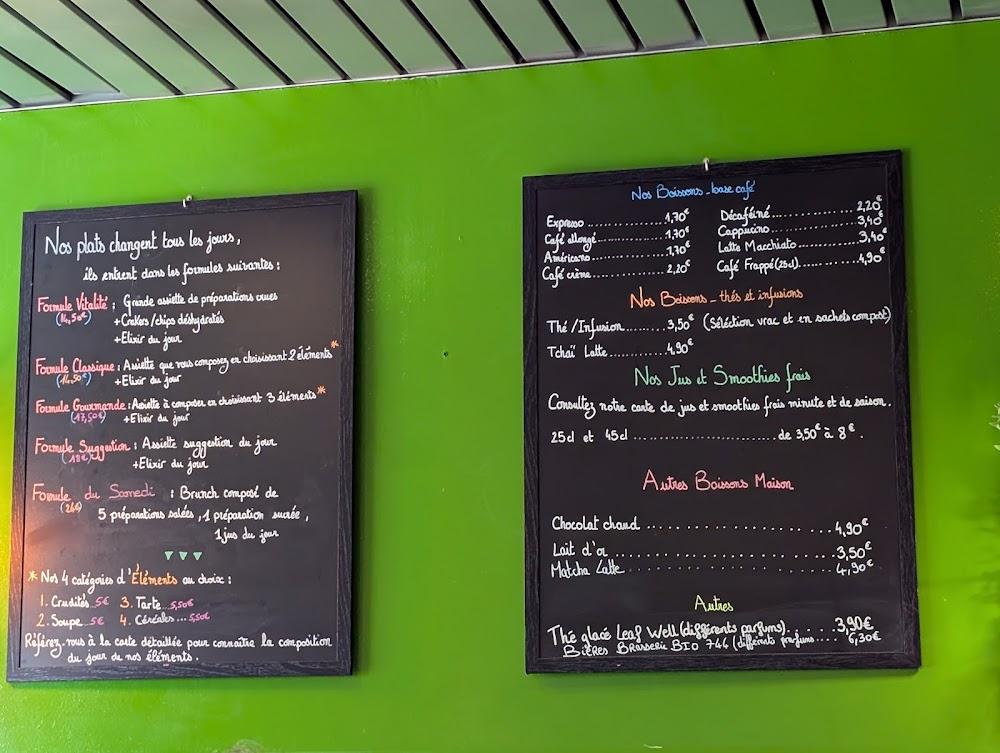 Nos plats changent tous les jours,
ils entrent dans les formules suivantes :
Formule Vitalité : Grande assiette de préparations crues
(14,50€) +Crakers/chips déshydratés
+Elixir du jour
Formule Classique : Assiette que vous composez en choisissant 2 éléments*
(14,50€) +Elixir du jour
Formule Gourmande : Assiette à composer en choisissant 3 éléments*
(17,50€) +Elixir du jour
Formule Suggestion : Assiette suggestion du jour
(18€) +Elixir du jour
Formule du Samedi : Brunch composé de
(26€) 5 préparations salées, 1 préparation sucrée,
1 jus du jour
*Nos 4 catégories d'Éléments au choix :
1. Crudités 5€ 3. Tarte 5,50€
2. Soupe 5€ 4. Céréales ... 5,50€
Référez-vous à la carte détaillée pour connaître la composition
du jour de nos éléments.
Nos Boissons - base café
Expresso ............ 1,70€ Décaféiné ............ 2,20€
Café allongé ............ 1,70€ Cappucino ............ 3,40€
Américano ............ 1,70€ Latte Macchiato ............ 3,40€
Café crème ............ 2,20€ Café Frappé (25cl) ............ 4,90€
Nos Boissons - thés et infusions
Thé/Infusion ........ 3,50€ (Séléction vrac et en sachets compost)
Tchaï Latte ......... 4,90€
Nos Jus et Smoothies frais
Consultez notre carte de jus et smoothies frais minute et de saison.
25cl et 45cl ........................ de 3,50€ à 8€.
Autres Boissons Maison
Chocolat chaud ........................ 4,90€
Lait d'or ........................ 3,50€
Matcha Latte ........................ 4,90€
Autres
Thé glacé Leaf Well (différents parfums) ........ 3,90€
Bières Brasserie BIO 744 (différents parfums ........ 6,30€